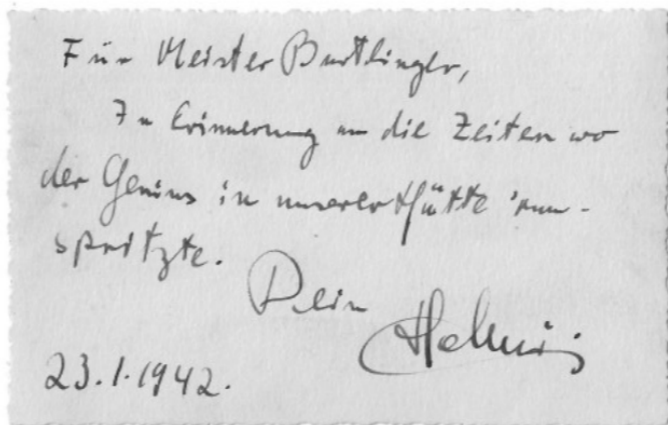 Für Meister Burtlinger,
In Erinnerung an die Zeiten wo
der Genius in unserer Hütte 'rum-
spritzte.
Dein
23.1.1942.